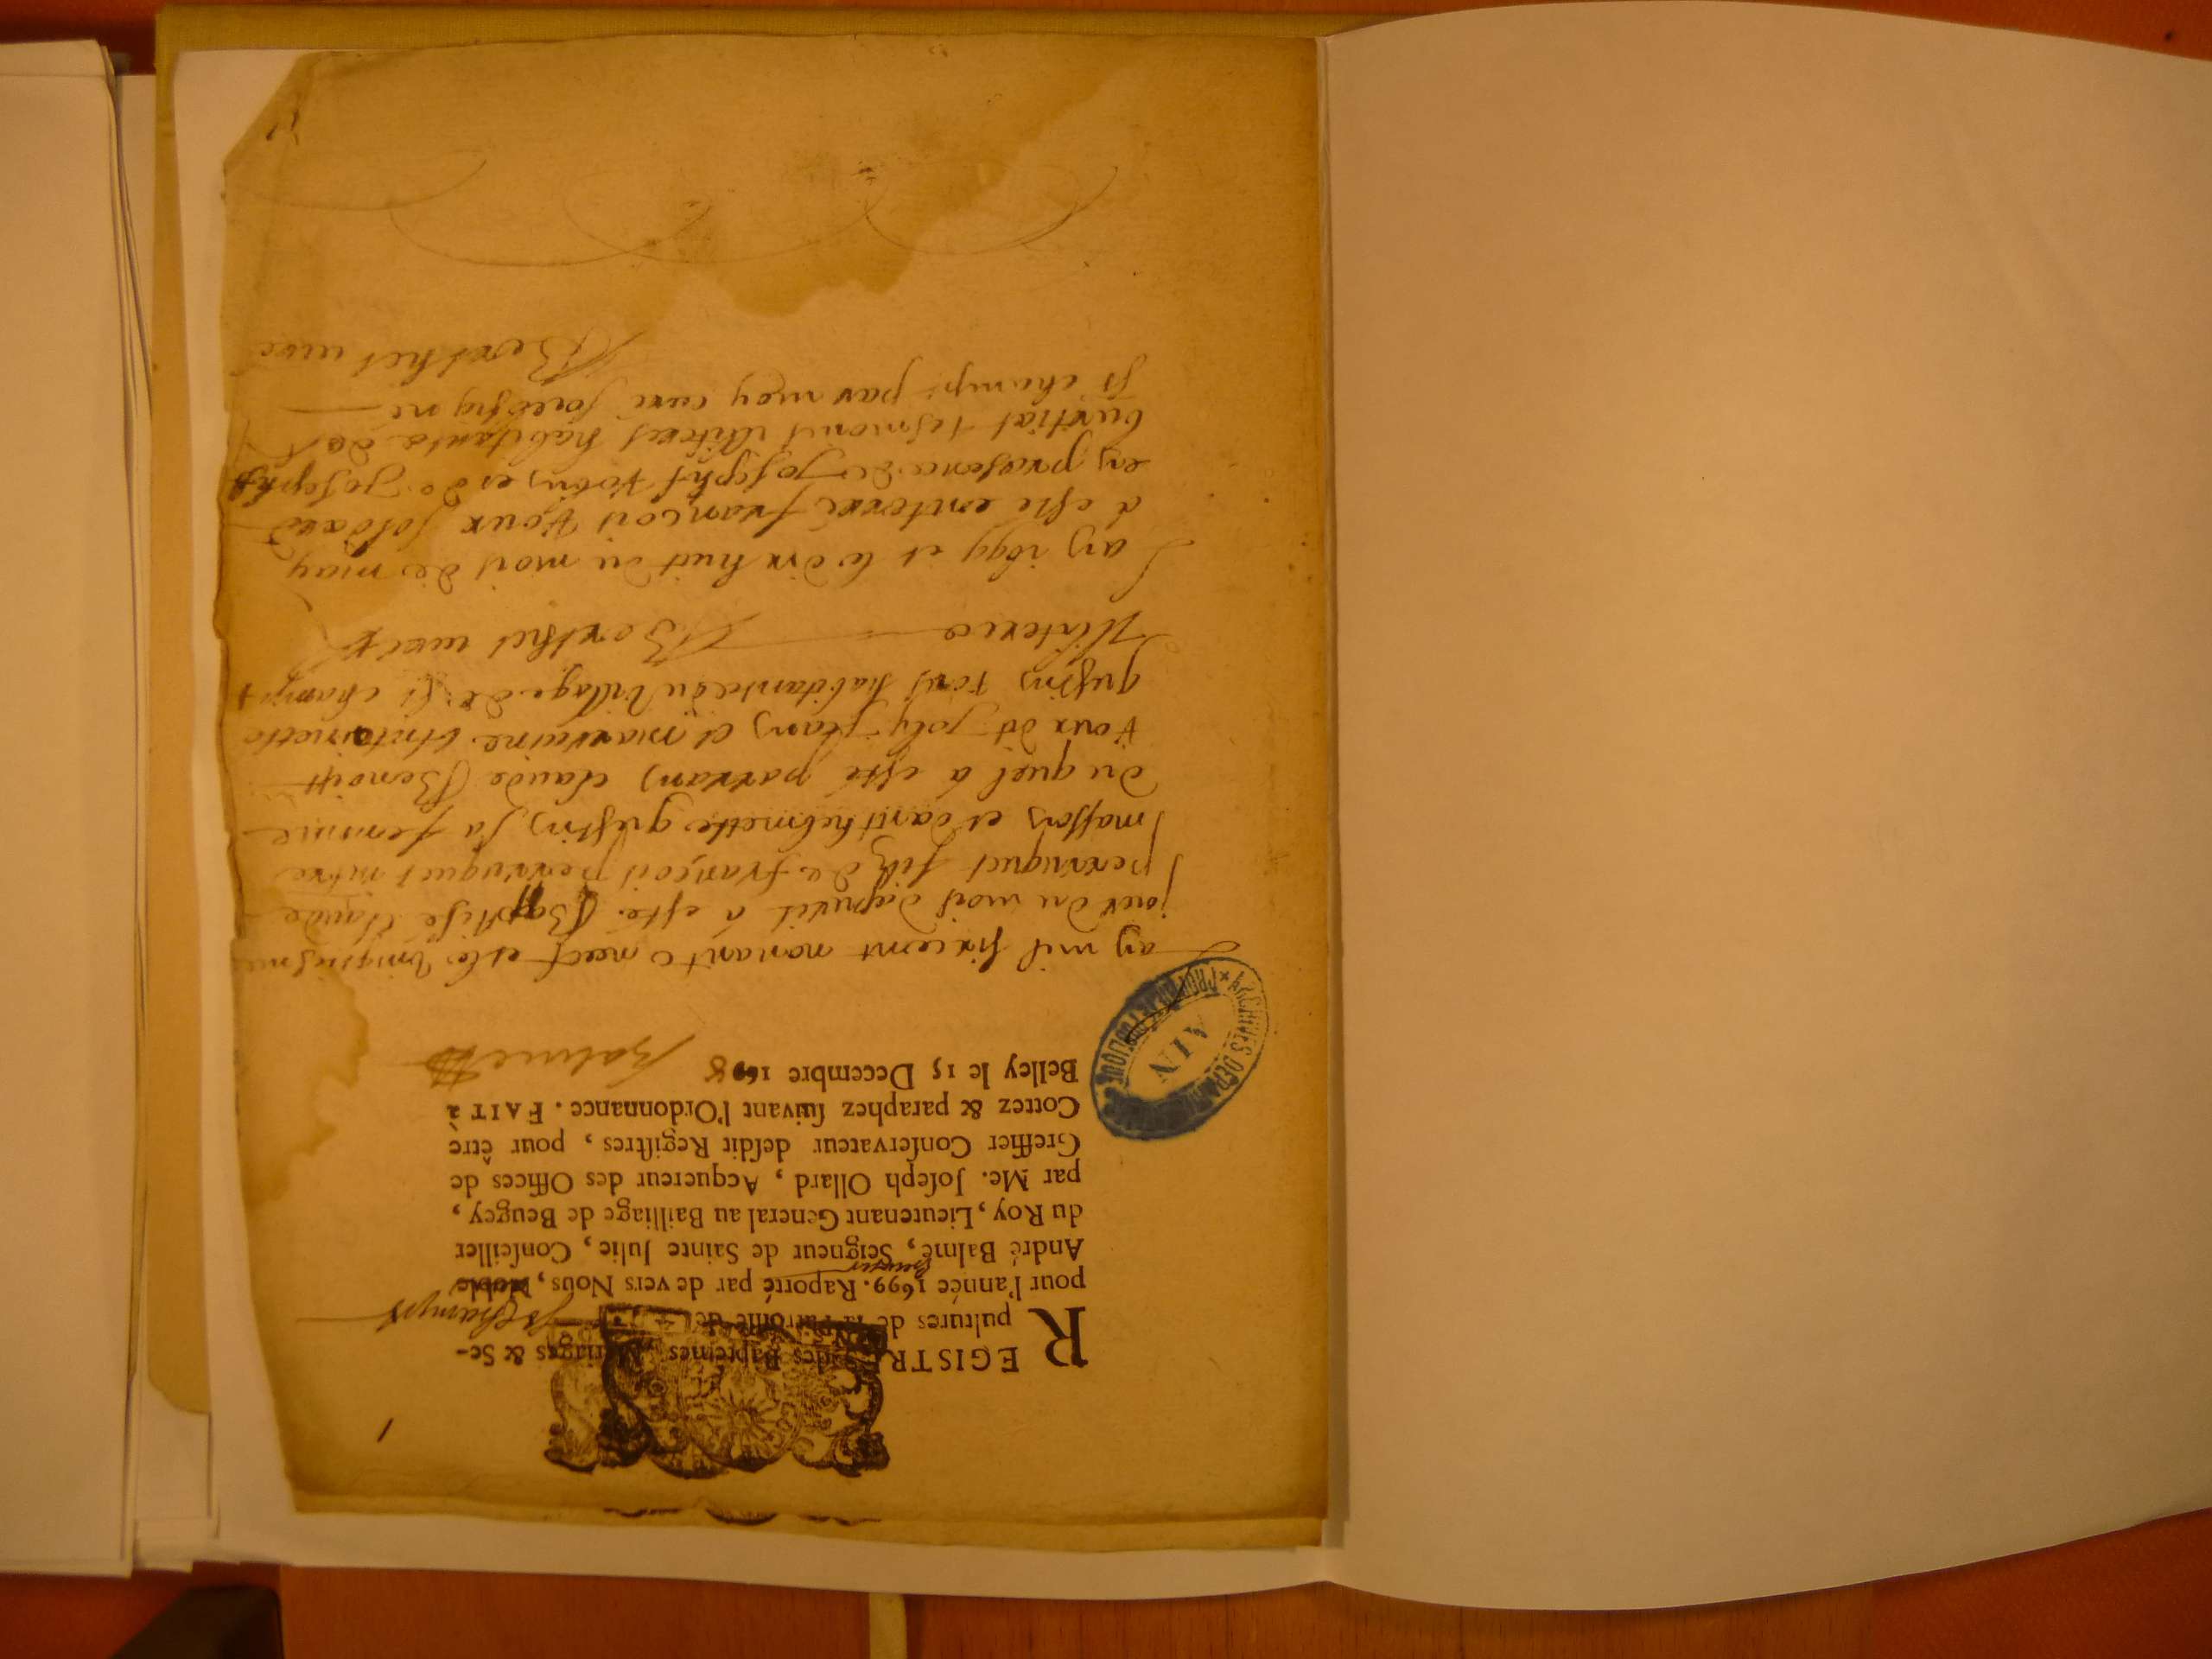 1
REGISTRE des Baptemes, Mariages & Se-
pultures de la Parroisse de St Champt
pour l'année 1699. Raporté par de vers Nous, Noble
André Balme, Seigneur de Sainte Julie, Conſeiller
du Roy, Lieutenant General au Bailliage de Beugey,
par Me. Joſeph Ollard, Acquereur des Offices de
Greffier Conſervateur deſdit Regiſtres, pour être
Cottez & paraphez ſuivant l'Ordonnance. FAIT à
Belley le 15 Decembre 1698
Balme
ARCHIVES DEPARTEMENTALES
AIN
PROPRIÉTÉ PUBLIQUE
Lan mil sixcent nonante neuf et le vingtiesme
jour du mois dapvril a esté Baptisé Claude
perruquet filz de françois perruquet mtre
masson et danthelmette gustin sa femme
du quel a esté parrain claude Benoist
roux dit joly jean et marraine Antoinette
gustin tous habitants du village de st champt
Illiterés Berthet curé
Lan 1699 et le dix huit du mois de may
a esté enterré francois roux soldard
en presence de Josepht robin et de Josepht
burtiat tesmoins illiterés habitants de st
st champt par moy curé soubsigné
Berthet curé